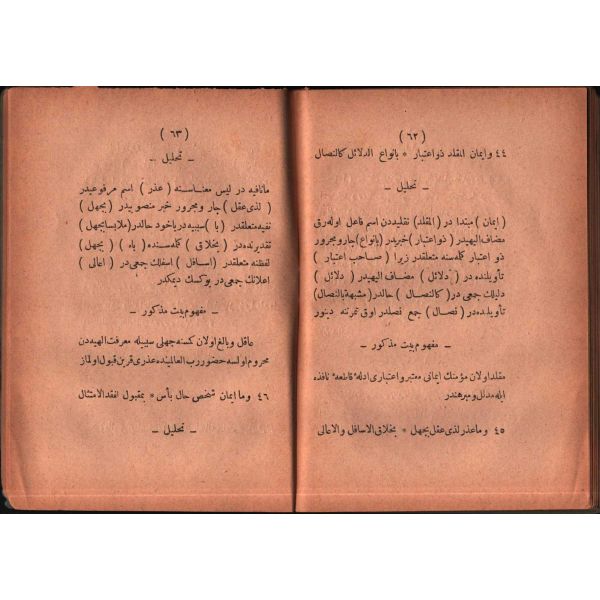 ( ٦٢ )
٤٤ وايمان المقلد ذو اعتبار * بانواع الدلائل كالنصال
ـ تحليل ـ
( ايمان ) مبتدا در ( المقلد ) تقليددن اسم فاعل اوله رق
مضاف اليهيدر ( ذو اعتبار ) خبريدر ( بانواع ) جار ومجرور
ذو اعتبار كلمه سنه متعلقدر زيرا ( صاحب اعتبار )
تأويلنده در ( دلائل ) مضاف اليهيدر ( دلائل )
دليلك جمعى در ( كالنصال ) حالدر ( مشبهة بالنصال )
تأويلنده در ( نصال ) جمع نصلدر اوق تمرننه دينور
ـ مفهوم بيت مذكور ـ
مقلد اولان مؤمنك ايمانى معتبر واعتبارى ادلهٔ قاطعهٔ نافذه
ايله مدلل ومبرهندر
٤٥ وما عذر لذى عقل بجهل * بخلاق الاسافل والاعالى
( ٦٣ )
ـ تحليل ـ
مانافيه در ليس معناسنه ( عذر ) اسم مرفوعيدر
( لذى عقل ) جار ومجرور خبر منصوبيدر ( بجهل )
نفيه متعلقدر ( با ) سببيه در ياخود حالدر ( ملابسا بجهل )
تقديرنده در ( بخلاق ) كلمه سنده ( باء ) ( بجهل )
لفظنه متعلقدر ( اسافل ) اسفلك جمعى در ( اعالى )
اعلانك جمعى در يوكسك ديمكدر
ـ مفهوم بيت مذكور ـ
عاقل وبالغ اولان كسنه جهلى سببيله معرفت الهيه دن
محروم اولسه حضور رب العالمينده عذرى قرين قبول اولماز
٤٦ وما ايمان شخص حال بأس * بمقبول لفقد الامتثال
ـ تحليل ـ